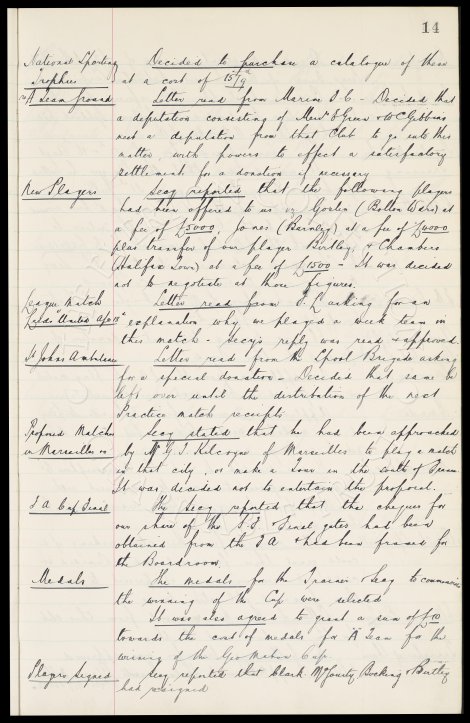 14
National Sporting Decided to purchase a catalogue of these
Trophies at a cost of 15/9
re A Team Ground Letter read from Marine F.C. - Decided that
a deputation consisting of Messrs Green + W C Gibbins
meet a deputation from that Club to go into this
matter, with powers to effect a satisfactory
settlement for a donation if necessary
New Players Secy reported that the following players
had been offered to us Goslin (Bolton Wand) at
a fee of £5000, Jones (Barnsley) at a fee of £4000
plus transfer of our player Bentley, + Chambers
(Halifax Town) at a fee of £1500 - It was decided
not to negotiate at those figures.
League Match Letter read from F.L asking for an
Leeds United explanation why we played a weak team in
this match - Secy's reply was read + approved.
St Johns Ambulance Letter read from the Lpool Brigade asking
for a special donation - Decided that same be
left over until the distribution of the next
Practice match receipts
Proposed Matches Secy stated that he had been approached
in Marseilles by Mr G J Kilcoyne of Marseilles to play a match
in that city, or make a Tour in the south of France.
It was decided not to entertain the proposal.
F A Cup Final The Secy reported that the cheques for
our share of the Final gates had been
obtained from the F A + had been framed for
the Boardroom
Medals The medals for the Trainer + Secy to commemorate
the winning of the Cup were selected
It was also agreed to grant a sum of £10
towards the cost of medals for "A" Team for the
winning of the Geo Mahon Cup.
Players Signed Secy reported that Clark McGourty Bocking + Bentley
had resigned